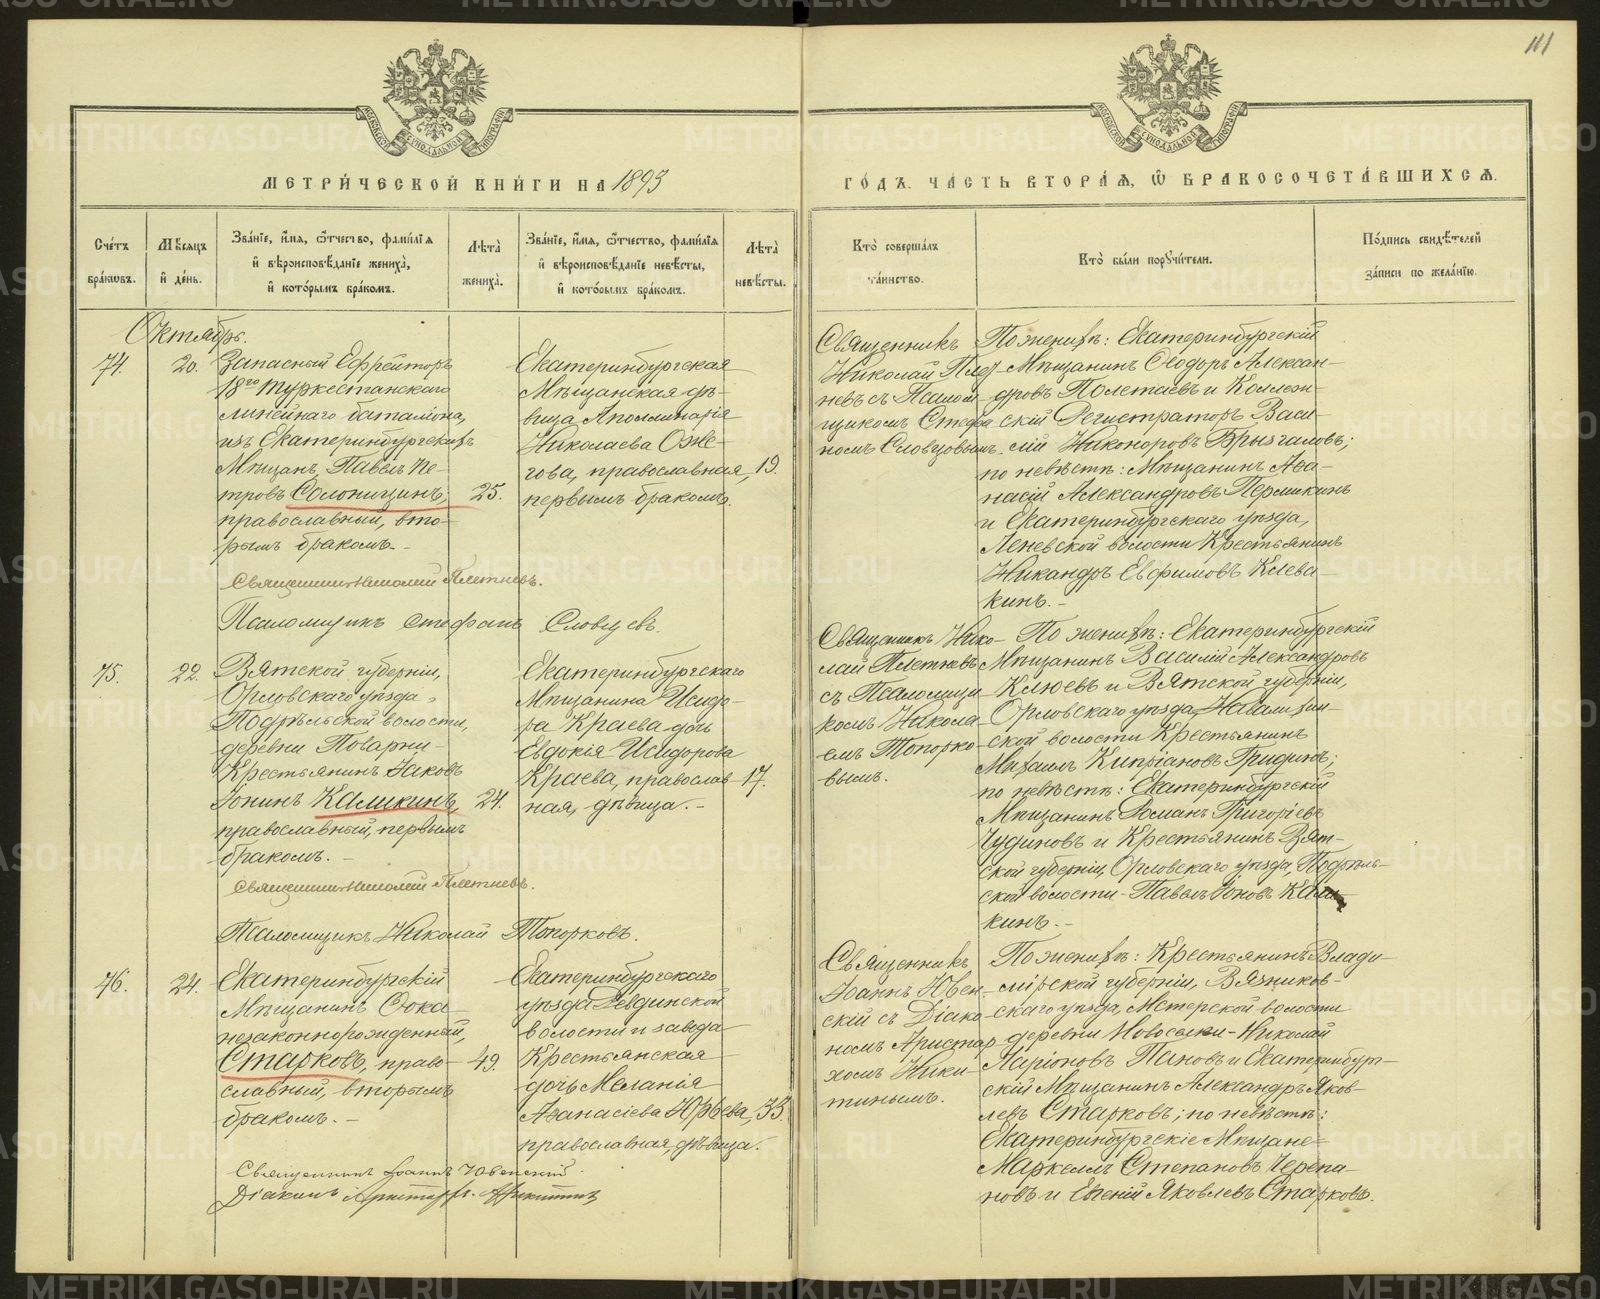 111
МОСКОВСКОЙ СѴНОДАЛЬНОЙ ТИПОГРАФІИ
МОСКОВСКОЙ СѴНОДАЛЬНОЙ ТИПОГРАФІИ
МЕТРИ́ЧЕСКОЙ КНИ́ГИ НА 1893
ГО́ДЪ. ЧА́СТЬ ВТОРА́Ѧ, Ѽ БРАКОСОЧЕТА́ВШИХСѦ.
Сче́тъ бра́кѡвъ.
Мѣ́сѧцъ и҆ де́нь.
Зва́нїе, и҆́мѧ, ѻ҆́тчество, фами́лїѧ и҆ вѣроисповѣ́данїе жениха̀, и҆ кото́рымъ бра́комъ.
Лѣ́та̀ жениха̀.
Зва́нїе, и҆́мѧ, ѻ҆́тчество, фами́лїѧ и҆ вѣроисповѣ́данїе невѣ́сты, и҆ кото́рымъ бра́комъ.
Лѣ́та̀ невѣ́сты.
Кто̀ соверша́лъ та́инство.
Кто̀ бы́ли порꙋчи́тели.
По́дпись свидѣ́телей за́писи по жела́нїю.
Октябрь.
74.
20.
Запасный Ефрейторъ
18го Туркестанскаго
линейнаго баталіона,
изъ Екатеринбургскихъ
Мѣщанъ, Павелъ Пе-
тровъ Солоницинъ,
православный, вто-
рымъ бракомъ.-
25.
Екатеринбургская
Мѣщанская дѣ-
вица Аполлинарія
Николаева Оже-
гова, православная,
первымъ бракомъ.
19.
Священникъ
Николай Плет-
невъ съ Псалом-
щикомъ Стефа-
номъ Словцовымъ.
По женихѣ: Екатеринбургскій
Мѣщанинъ Ѳеодоръ Алексан-
дровъ Полетаевъ и Коллеж-
скій Регистраторъ Васи-
лій Никоноровъ Брызгаловъ;
по невѣстѣ: Мѣщанинъ Аѳа-
насій Александровъ Пермикинъ
и Екатеринбургскаго уѣзда,
Леневской волости Крестьянинъ
Никандръ Евфимовъ Клева-
кинъ.-
Священникъ Николай Плетневъ.
Псаломщикъ Стефанъ Словцевъ.
75.
22.
Вятской губерніи,
Орловскаго уѣзда,
Подрѣльской волости,
деревни Поварни-
Крестьянинъ Іаковъ
Іонинъ Каликинъ,
православный, первымъ
бракомъ.-
24.
Екатеринбургскаго
Мѣщанина Исидо-
ра Краева дочь
Евдокія Исидорова
Краева, православ-
ная, дѣвица.-
17.
Священникъ Нико-
лай Плетневъ
съ Псаломщи-
комъ Никола-
емъ Топорко-
вымъ.
По женихѣ: Екатеринбургскій
Мѣщанинъ Василій Александровъ
Клюевъ и Вятской губерніи,
Орловскаго уѣзда,
ской волости Крестьянинъ
Михаилъ Кипріановъ Гридинъ;
по невѣстѣ: Екатеринбургскій
Мѣщанинъ Романъ Григорьевъ
Чудиновъ и Крестьянинъ Вят-
ской губерніи, Орловскаго уѣзда, Подрѣль-
ской волости-Павелъ Іоновъ Кали-
кинъ.-
Священникъ Николай Плетневъ.
Псаломщикъ Николай Топорковъ.
76.
24.
Екатеринбургскій
Мѣщанинъ Ѳока
незаконнорожденный,
Старковъ, право-
славный, вторымъ
бракомъ.-
49.
Екатеринбургскаго
уѣзда Ревдинской
волости и завода
Крестьянская
дочь Меланія
Аѳанасіева Юрьева,
православная, дѣвица.
33.
Священникъ
Іоаннъ Ювен-
скій съ Діако-
номъ Аристар-
хомъ Ники-
тинымъ.
По женихѣ: Крестьянинъ Влади-
мірской губерніи, Вязников-
скаго уѣзда, Мстерской волости
деревни Новоселки-Николай
Ларіоновъ Пановъ и Екатеринбург-
скій Мѣщанинъ Александръ Яков-
левъ Старковъ; по невѣстѣ:
Екатеринбургскіе Мѣщане-
Маркеллъ Степановъ Черепа-
новъ и Евгеній Яковлевъ Старковъ.
Священникъ Іоаннъ Ювенскій
Діаконъ Аристархъ Никитинъ
METRIKI.GASO-URAL.RU